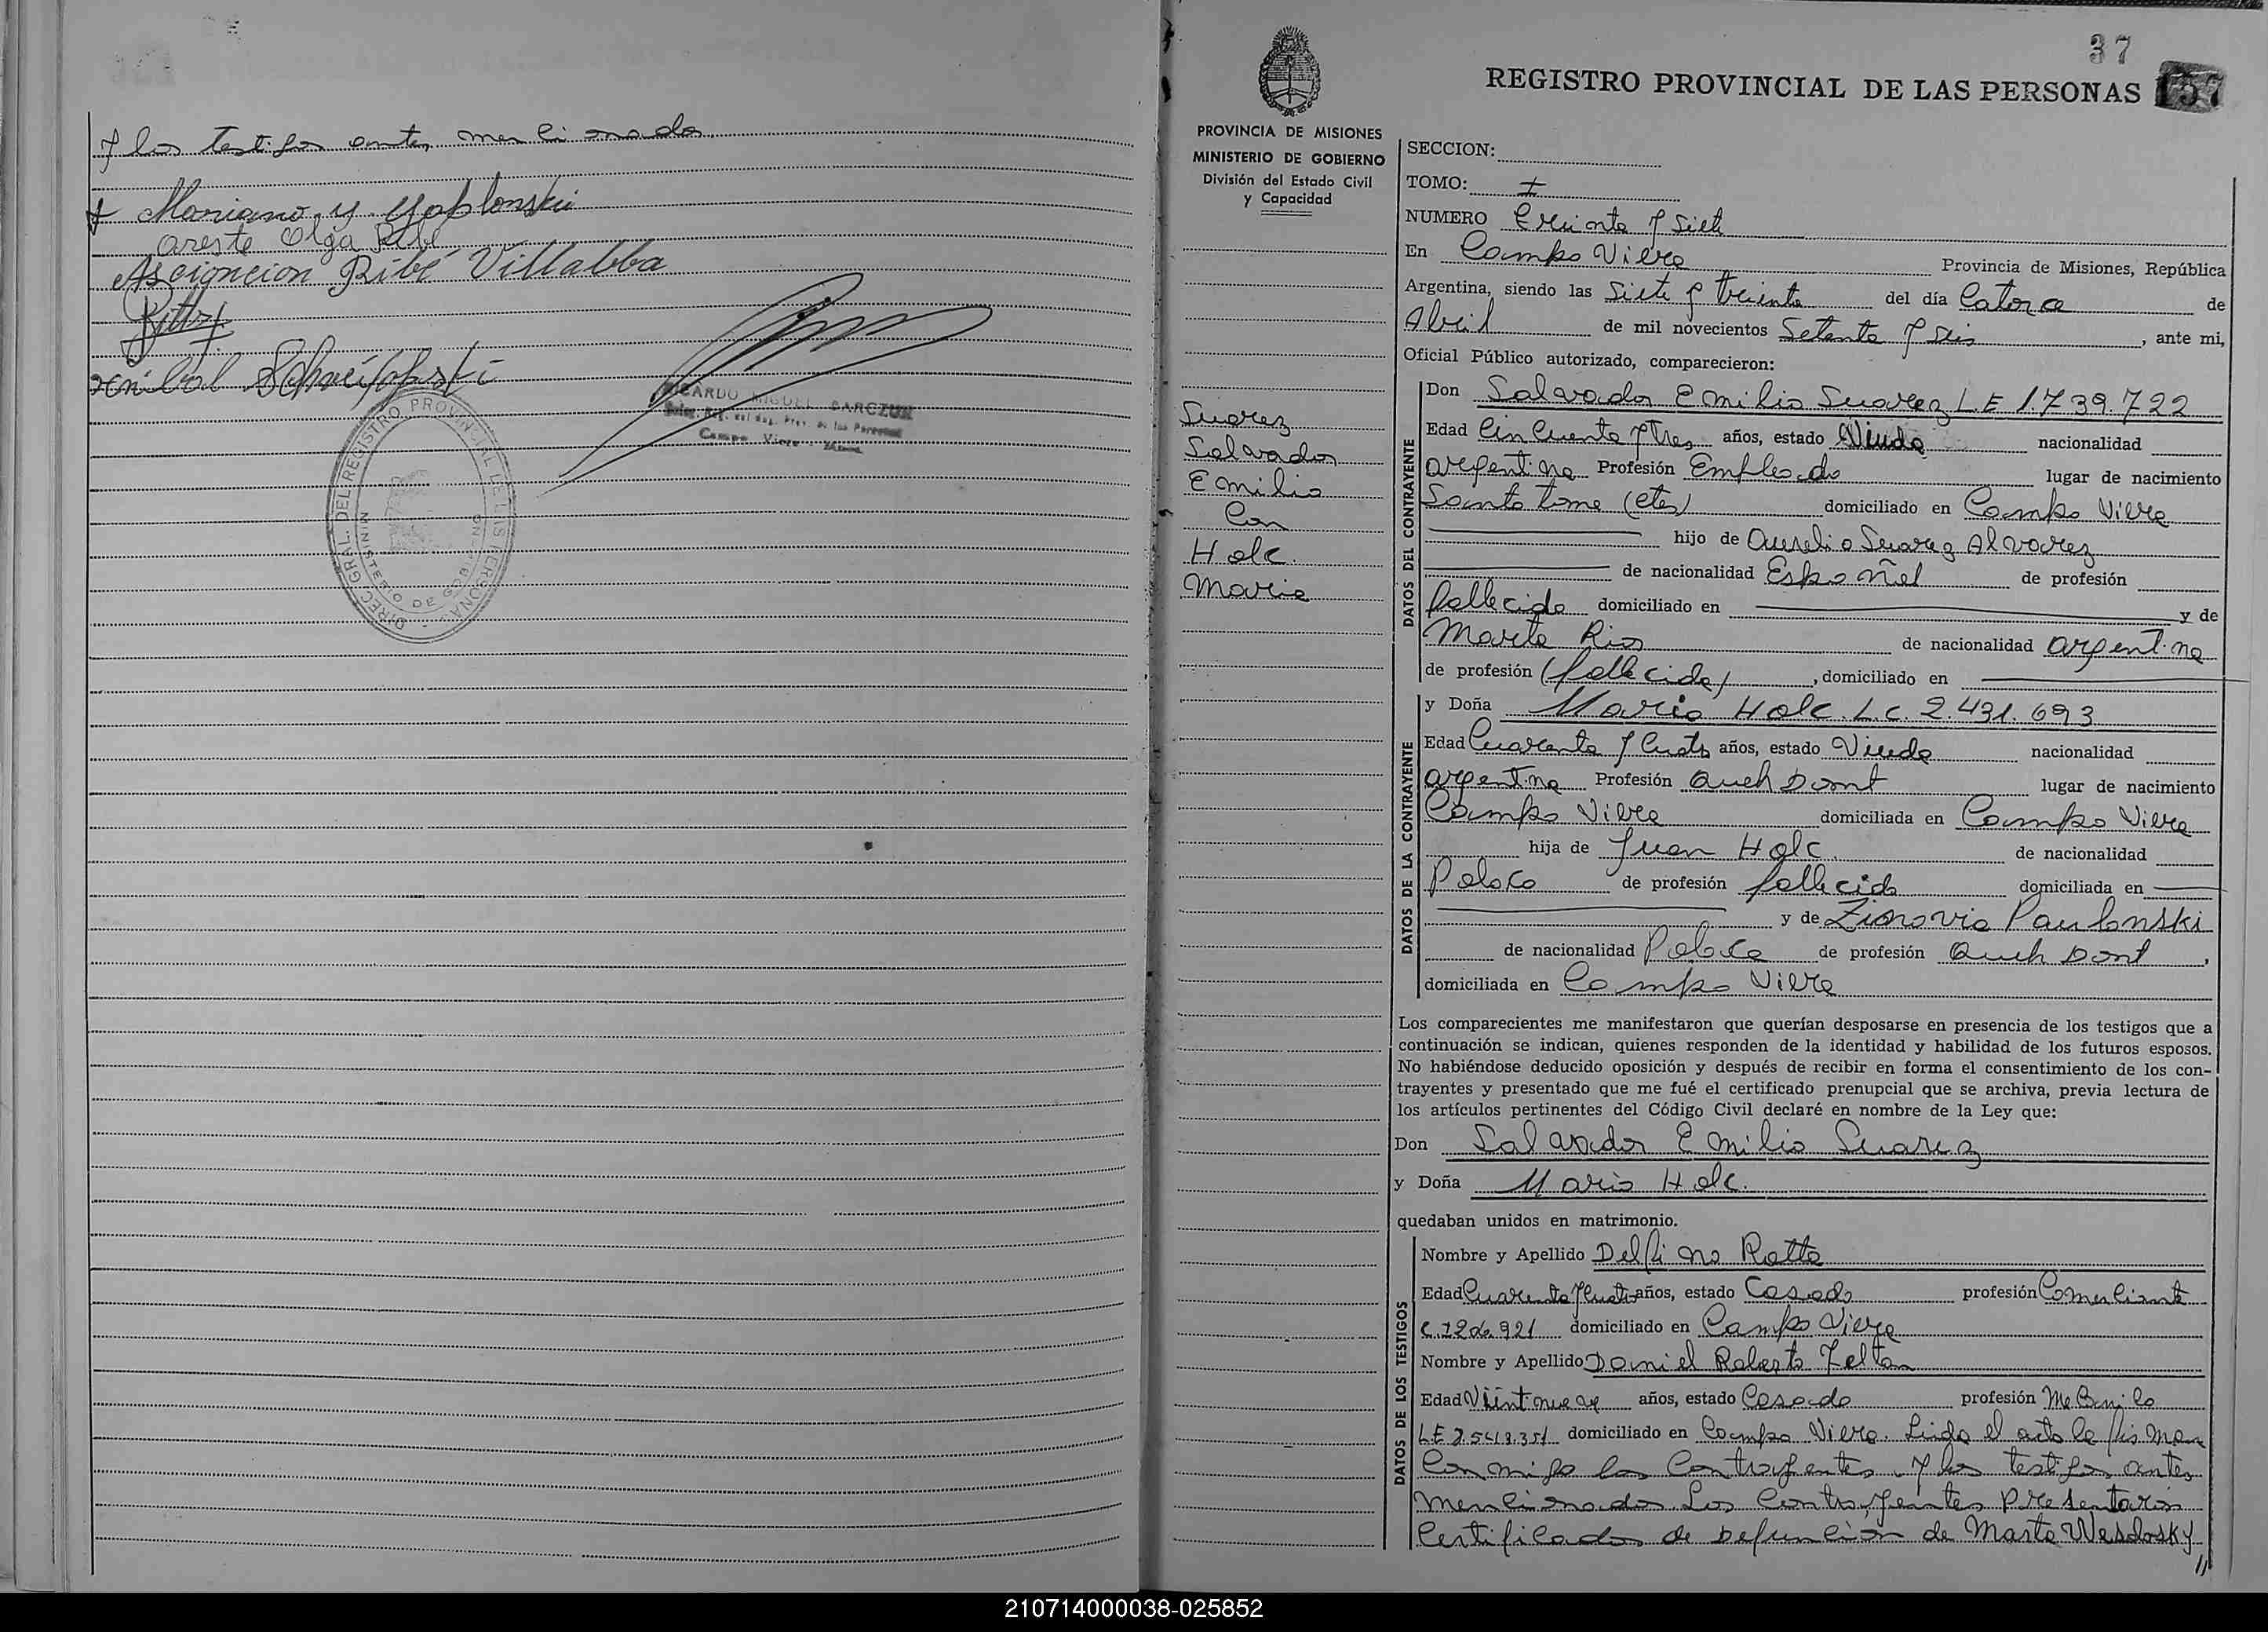 y los testigos antes mencionados
Mariano y Yaplonski
areste Olga Ribé
Ascigncion Ribé Villabba
RICARDO MIGUEL BARCZUK
Campo Viera
DIREC. GRAL. DEL REGISTRO PROVINCIAL DE LAS PERSONAS
MINISTERIO DE GOBIERNO
37
REGISTRO PROVINCIAL DE LAS PERSONAS 157
PROVINCIA DE MISIONES
MINISTERIO DE GOBIERNO
División del Estado Civil
y Capacidad
Suarez
Salvador
Emilio
Con
Holc.
Maria
SECCION:
TOMO: I
NUMERO Treinta y Siete
En Campo Viera Provincia de Misiones, República
Argentina, siendo las Siete y treinta del día Catorce de
Abril de mil novecientos Setenta y Seis, ante mi,
Oficial Público autorizado, comparecieron:
DATOS DEL CONTRAYENTE
Don Salvador Emilio Suarez L.E 1.739.722
Edad Cincuenta y tres años, estado Viudo nacionalidad
argentina Profesión Empleado lugar de nacimiento
Santo tome (ctes) domiciliado en Campo Viera
hijo de Aurelio Suarez Alvarez
de nacionalidad Español de profesión
fallecido domiciliado en y de
Marta Rios de nacionalidad argentina
de profesión (fallecida), domiciliado en
DATOS DE LA CONTRAYENTE
y Doña Maria Holc. L.c. 2.431.693
Edad Cuarenta y Cuatro años, estado Viuda nacionalidad
argentina Profesión Queh Domt lugar de nacimiento
Campo Viera domiciliada en Campo Viera
hija de Juan Holc. de nacionalidad
Polaco de profesión fallecido domiciliada en
y de Zionovia Paulonski
de nacionalidad Polaca de profesión Queh Domt,
domiciliada en Campo Viera
Los comparecientes me manifestaron que querían desposarse en presencia de los testigos que a
continuación se indican, quienes responden de la identidad y habilidad de los futuros esposos.
No habiéndose deducido oposición y después de recibir en forma el consentimiento de los con-
trayentes y presentado que me fué el certificado prenupcial que se archiva, previa lectura de
los artículos pertinentes del Código Civil declaré en nombre de la Ley que:
Don Salvador Emilio Suarez
y Doña Maria Holc.
quedaban unidos en matrimonio.
DATOS DE LOS TESTIGOS
Nombre y Apellido Delfino Rotta
Edad Cuarenta y Cuatro años, estado Casado profesión Comerciante
domiciliado en Campo Viera
Nombre y Apellido Daniel Roberto Zeltan
Edad Veintinueve años, estado Casado profesión Mecanico
domiciliado en Campo Viera. Leida el acta la firman
Conmigo los Contrayentes y los testigos antes
mencionados Los Contrayentes presentaron
Certificados de Defunción de Marta Wesdosky
210714000038-025852